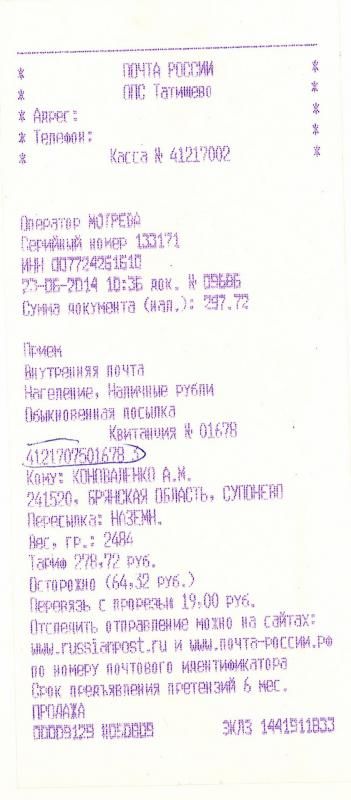 * ПОЧТА РОССИИ *
* ОПС Татищево *
* Адрес: *
* Телефон: *
* Касса № 41217002 *
Оператор МОГРЕВА
Серийный номер 133171
ИНН 007724261610
23-06-2014 10:36 док. № 09686
Сумма документа (нал.): 297.72
Прием
Внутренняя почта
Население, Наличные рубли
Обыкновенная посылка
Квитанция № 01678
4121707501678 3
Кому: КОНОВАЛЕНКО А.М.
241520, БРЯНСКАЯ ОБЛАСТЬ, СУПОНЕВО
Пересылка: НАЗЕМН.
Вес, гр.: 2484
Тариф 278,72 руб.
Осторожно (64,32 руб.)
Перевязь с прорезью 19,00 руб.
Отследить отправление можно на сайтах:
www.russianpost.ru и www.почта-россии.рф
по номеру почтового идентификатора
Срок предъявления претензий 6 мес.
ПРОДАЖА
00009129 ЭКЛЗ 1441911833